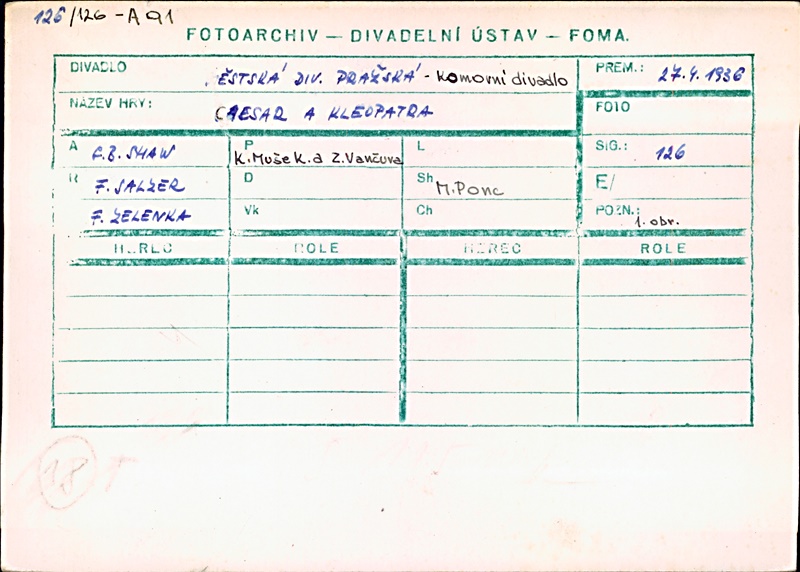 126/126 - A 91
FOTOARCHIV — DIVADELNÍ ÚSTAV — FOMA.
DIVADLO ĚSTSKÁ DIV. PRAŽSKÁ - Komorní divadlo PREM.: 27.4.1936
NÁZEV HRY: CAESAR A KLEOPATRA FOTO
A G.B. SHAW P K. Mušek a Z. Vančura L SIG.: 126
R F. SALZER D Sh M. Ponc E/
F. ZELENKA Vk Ch POZN.: 1. obr.
HEREC ROLE HEREC ROLE
18